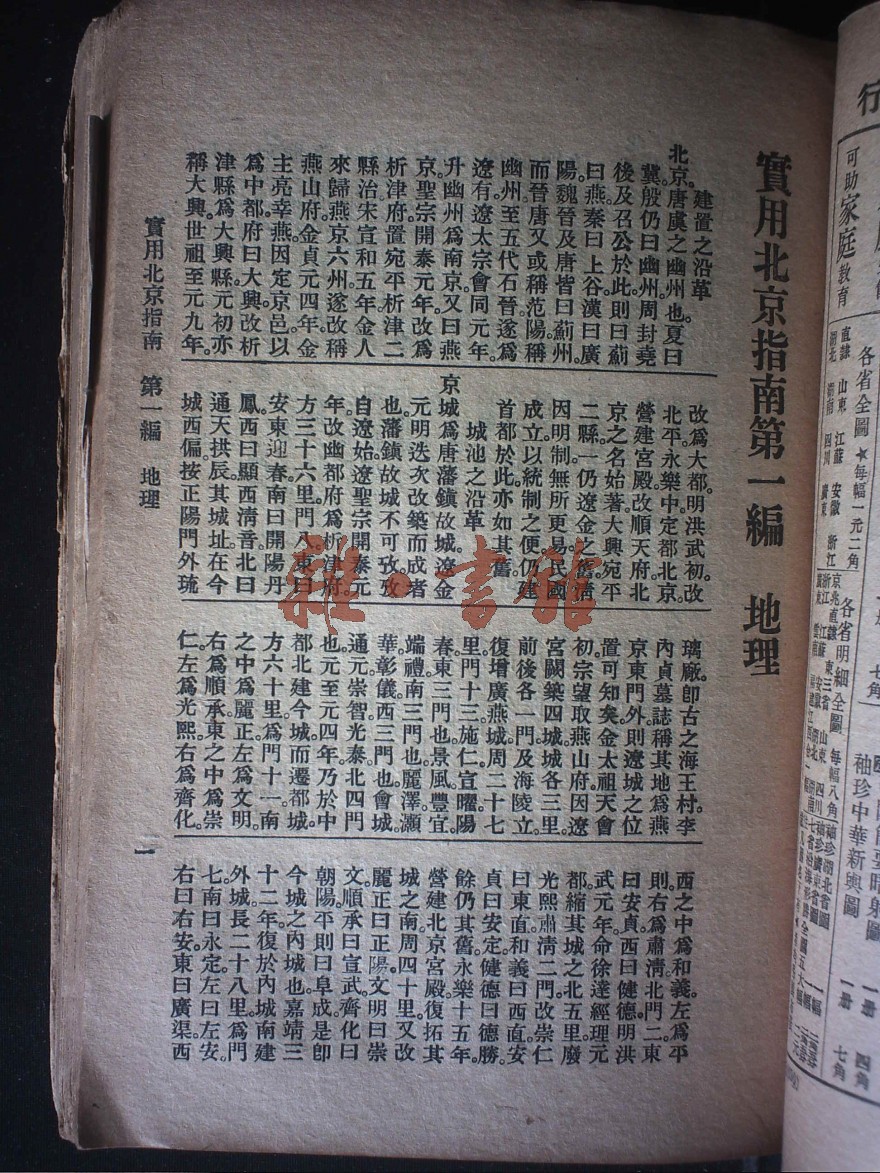 實用北京指南第一編　地理
建置之沿革
北京。唐虞之幽州也。夏曰
冀。殷仍曰幽州。周封堯
後及召公於此。則曰薊
曰燕。秦曰上谷。漢曰廣
陽。魏晉及唐皆曰薊州。
而晉唐又或稱范陽。稱
幽州。至五代石晉遂爲
遼有。遼太宗會同元年。
升幽州爲南京。又曰燕
京。聖宗開泰元年。改爲
析津府。置宛平析津二
縣治。宋宣和五年。金人
來歸燕京六州。遂改稱
燕山府。金貞元四年。金
主亮幸燕。因定京邑。以
爲中都府。曰大興。改析
津縣爲大興縣。元初亦
稱大興。世祖至元九年。
改爲大都。明洪武初。改
北平。永樂中定都北京。
營建宮殿。改順天府。北
京之名始著。大興宛平
二縣。一仍遼金之舊。清
因明制。無所更易。民國
成立。以統制之便。仍建
首都於此。亦如其舊。
城池之沿革
京城爲唐藩鎮故城。遼金
元明迭次改築而成者
也。藩鎮故城不可攷。攷
自遼始。遼聖宗開泰元
年。改幽都府爲析津府。
方三十六里。門八。東曰
安東迎春。南曰開陽丹
鳳。西曰顯西淸音。北曰
通天拱辰。其城址在今
城西偏。按正陽門外琉
璃廠。卽古之海王村。李
內貞墓誌稱其地爲燕
京東門外。則遼城之位
置可知矣。金太祖天會
初。宗望取燕山府。因遼
宮闕。築四城。城各三里。
前後各一門。及海陵立。
復增廣燕城。周二十七
里。門十三。施仁宣曜陽
春。東三門也。景風豐宜
端禮。南三門也。麗澤灝
華彰儀。西三門也。會城
通元崇智光泰。北四門
也。元至元四年。乃於中
都北建今城。而遷都城。
方六十里。爲門十一。南
之中爲麗正。左爲文明。
右爲順承。東之中爲崇
仁。左爲光熙。右爲齊化。
西之中爲和義。左爲平
則。右爲肅淸。北門二。東
曰安貞。西曰健德。明洪
武元年。命徐達經理元
都。縮其城之北五里。廢
光熙肅淸二門。改崇仁
曰東直。和義曰西直。安
貞曰安定。健德曰德勝。
餘仍其舊。永樂十五年。
營建北京宮殿。復拓其
城之南。周四十里。又改
麗正曰正陽。文明曰崇
文。順承曰宣武。齊化曰
朝陽。平則曰阜成。是卽
今城之內城也。嘉靖三
十二年。復於內城南建
外城。長二十八里。爲門
七。南曰永定。左曰左安。
右曰右安。東曰廣渠。西
實用北京指南　第一編　地理
一
雜·書館
可助家庭敎育
各省全圖　★每幅一元二角
各省明細全圖　每幅八角
袖珍中華新輿圖
一册　七角
一册　四角